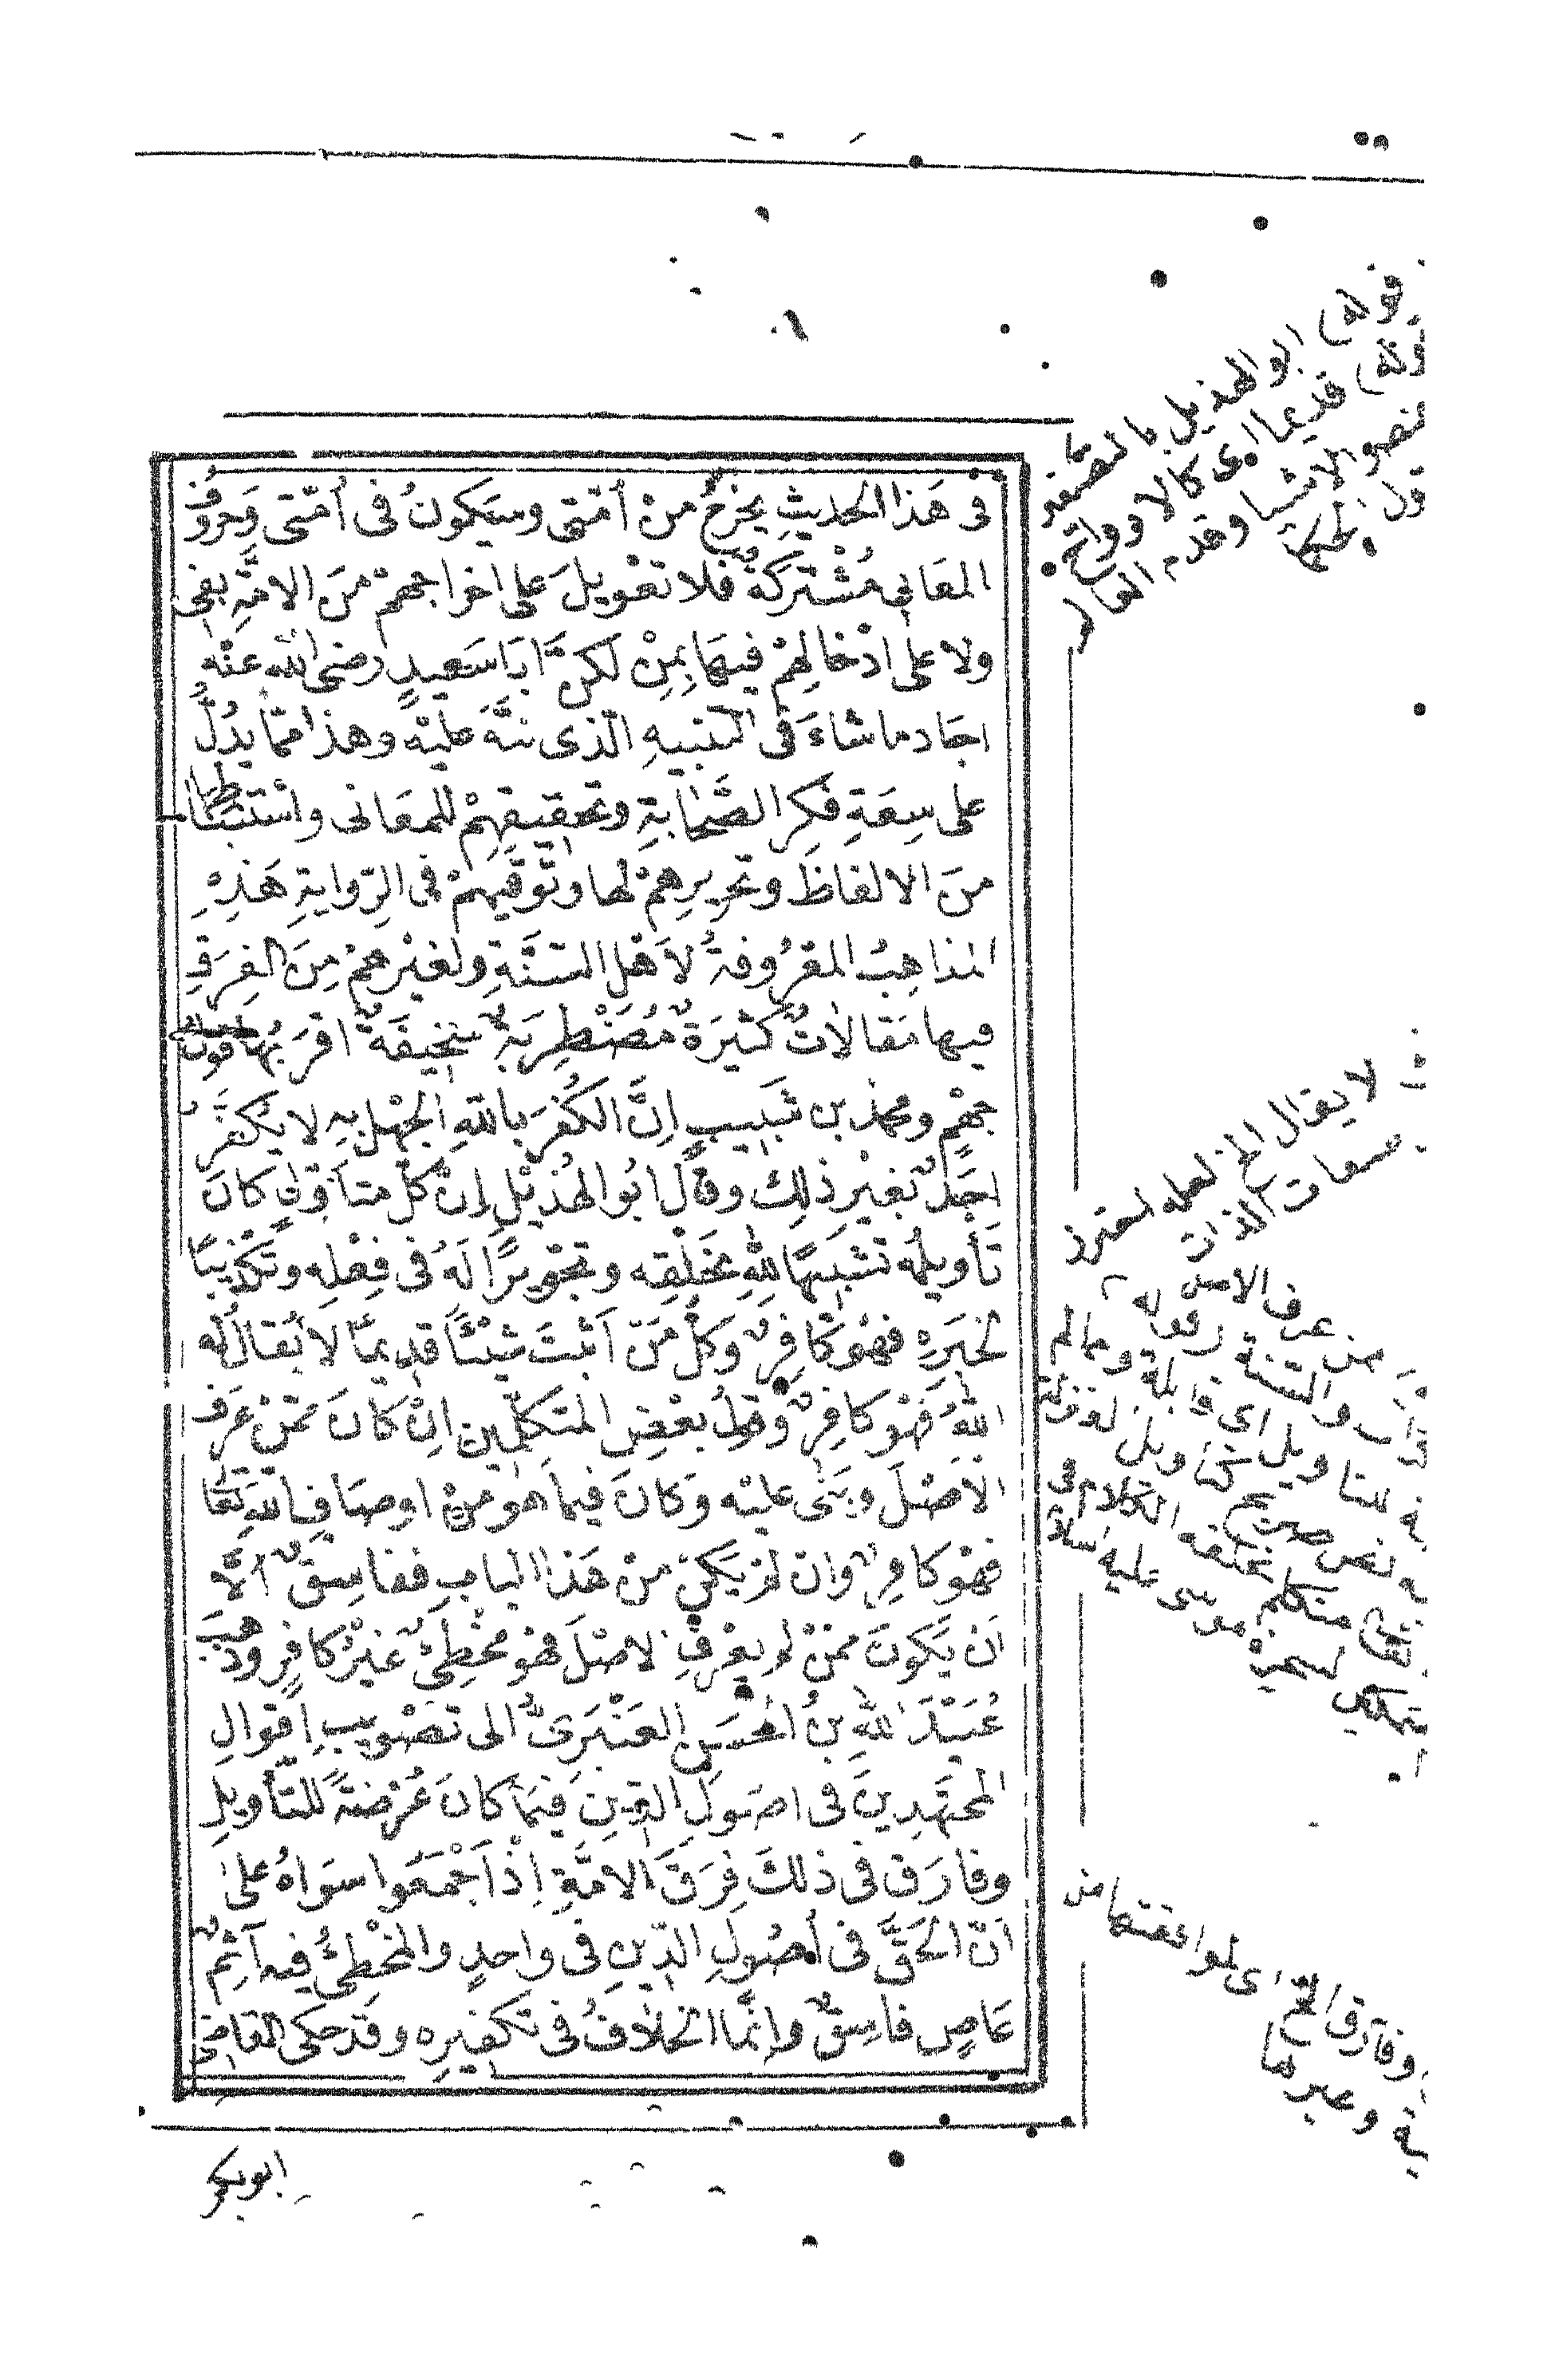 فى هَذا الحديثِ يخرُجُ مِنْ اُمّتى وسَيكونُ فى اُمّتى وَحروُفُ
المعَانى مُشْتركَةٌ فلا تعْويلَ على اخراجهمْ مِنَ الامَّةِ بفى
ولا على ادْخالِهمْ فيهَا بِمِنْ لكنَّ ابَا سَعيدٍ رضى الله عنْه
اجَاد ما شاءَ فى التنبيهِ الّذى نبَّهَ عليْه وهذا ممّا يدُلُّ
على سِعَةِ فكرِ الصَّحابةِ وتحقيقِهِمْ للمعَانى واسْتنباطها
مِنَ الالفاظ وتحريرِهمْ لها وتوَقّيهمْ فى الرّوايةِ هَذِهِ
المذاهبُ المعْرُوفةُ لاَهْلِ السّنَّةِ ولغيْرهمْ مِنَ الفِرَقِ
فيها مَقالاتٌ كثيرَةٌ مُضْطرِبَةٌ سَخيفَةٌ اقرَبُها قول
جهْمٍ ومحمّد بن شَبيبٍ اِنَّ الكُفرَ باللهِ الجهْل بهِ لا يكفُرُ
اَحَدٌ بغيْرِ ذلِكَ وقالَ ابُو الهُذيْلِ اِنّ كلّ متأوّلٍ كانَ
تَأويلُه تشبيهًا للهِ بخَلْقِه وتجْويرًا لَهُ فى فِعْلِه وَتكْذيبًا
لخبَرِهِ فهُوَ كافِرٌ وَكلّ مَنْ اَثبَتَ شيْئًا قديمًا لا يُقالُ لَه
اللهُ فهُوَ كافِرٌ وقولُ بعْضِ المتَكلّمين اِنْ كانَ ممّنْ عرَفَ
الاَصْلَ وبَنَى عليْه وَكانَ فيما هو مِنْ اوصَافِ اللهِ تعَا
فهُوَ كافِرٌ وان لمْ يَكنْ مِنْ هَذا البابِ ففاسِقٌ الاَّ
ان يَكونَ ممّنْ لم يعْرِفِ الاصْلَ فهُو مُخْطِئٌ غيْرُ كافِرٍ وذهبَ
عُبَيْدُ اللهِ بنُ الحسَنِ العَنْبَرىُّ الى تصْويبِ اقوَالِ
المجتَهِدينَ فى اصُولِ الدّينِ فيمَا كانَ عُرْضَةً للتّأويلِ
وفارَقَ فى ذلكَ فِرَقَ الامَّةِ اِذْ اَجْمَعُوا سوَاهُ علىٰ
اَنّ الحَقَّ فى اُصُولِ الدّينِ فى واحدٍ والمُخْطِئُ فيه آثِمٌ
عَاصٍ فاسِقٌ وانّما الخلافُ فى تكفيرِه وقد حكى القاضى
ابوبكر
قوله) ابو الهذيل بالتصغير
قوله) قديما اى كالا
وقدم العالم
لا يقال الخ لعله احترز
صفات الذات
ممن عرف الاصل
وفارق الخ اى
وغيرها